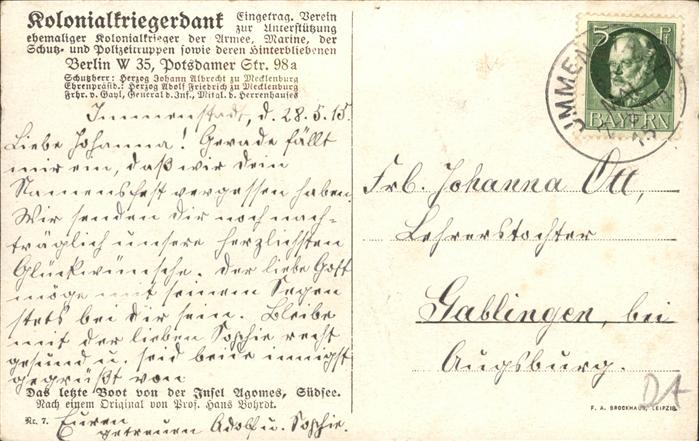 Kolonialkriegerdank Eingetrag. Verein
zur Unterstützung
ehemaliger Kolonialkrieger der Armee, Marine, der
Schutz- und Polizeitruppen sowie deren Hinterbliebenen
Berlin W 35, Potsdamer Str. 98a
Schutzherr: Herzog Johann Albrecht zu Mecklenburg
Ehrenpräsid.: Herzog Adolf Friedrich zu Mecklenburg
Frhr. v. Gayl, General d. Inf., Mitgl. d. Herrenhauses
5 Pf
BAYERN
IMMENS
Immenstadt, d. 28.5.15.
Liebe Johanna! Gerade fällt
mir ein, daß wir dein
Namensfest vergessen haben.
Wir senden dir noch nach-
träglich unsere herzlichsten
Glückwünsche. Der liebe Gott
möge mit seinem Segen
stets bei dir sein. Bleibe
mit der lieben Sophie recht
gesund u. seid beide innigst
gegrüßt von
Das letzte Boot von der Insel Agomes, Südsee.
Nach einem Original von Prof. Hans Bohrdt.
Nr. 7. Euren
getreuen Adolf u. Sophie.
Frl. Johanna Ott,
Lehrerstochter
Gablingen, bei
Augsburg.
F. A. BROCKHAUS, LEIPZIG